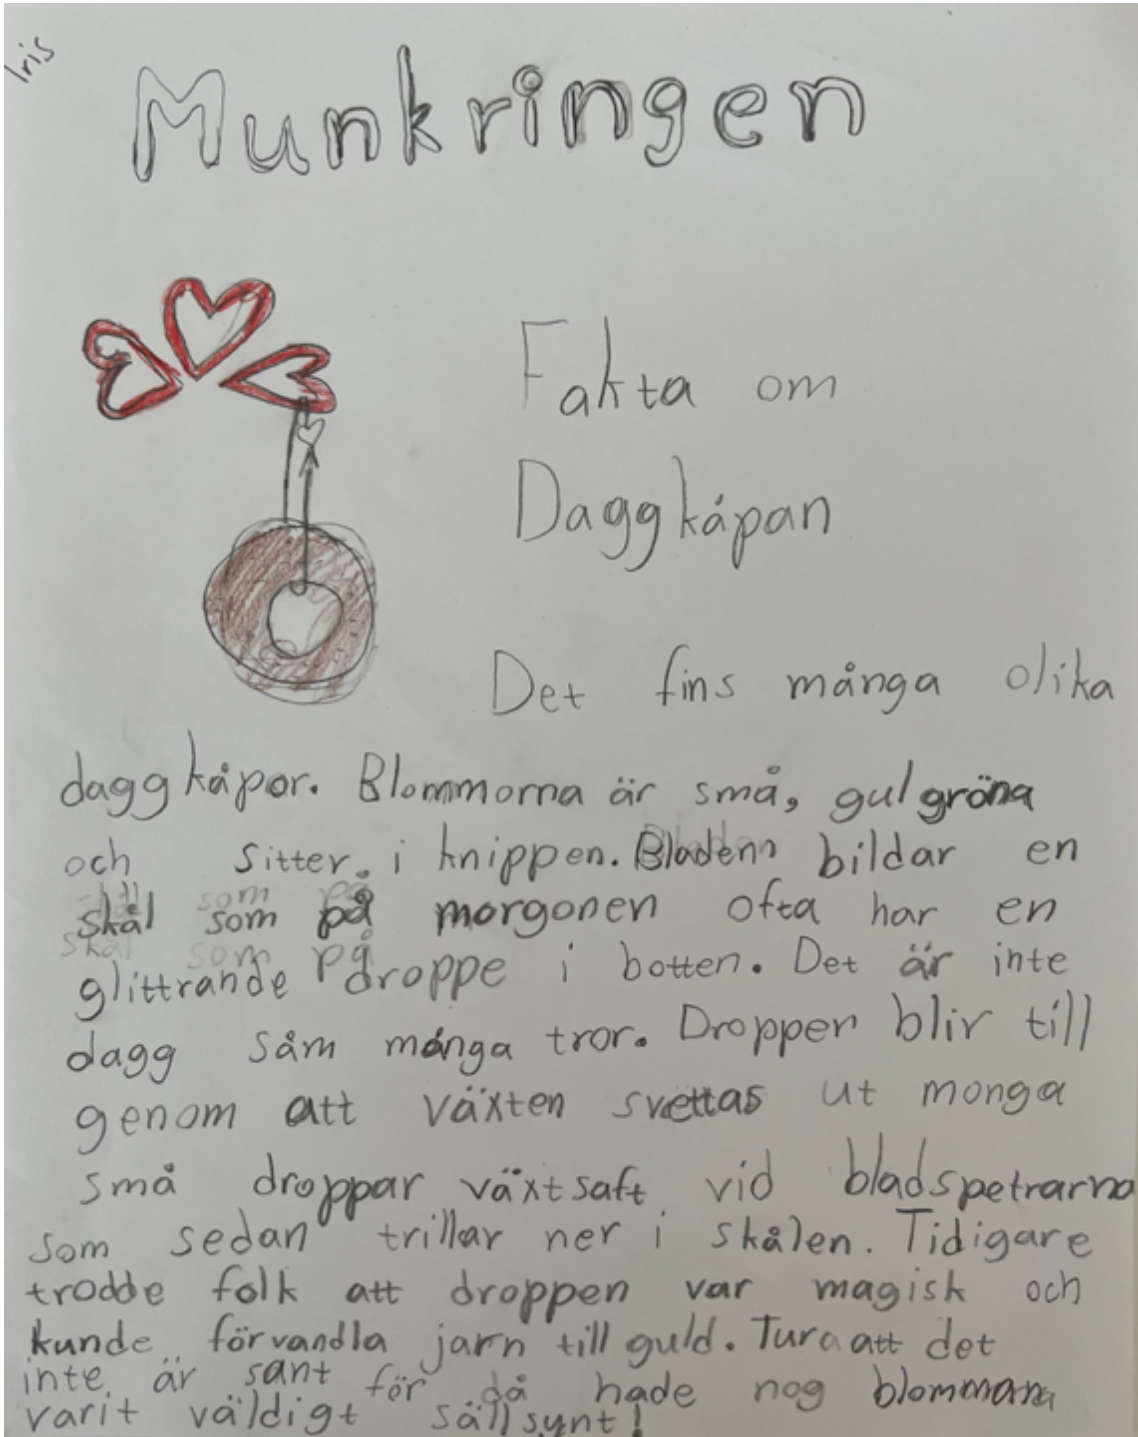 Iris
Munkringen
Fakta om
Daggkåpan
Det fins många olika
daggkåpor. Blommorna är små, gulgröna
och sitter i knippen. Bladen bildar en
skål som på morgonen ofta har en
glittrande droppe i botten. Det är inte
dagg såm många tror. Droppen blir till
genom att växten svettas ut monga
små droppar växtsaft vid bladspetrarna
som sedan trillar ner i skålen. Tidigare
trodde folk att droppen var magisk och
kunde förvandla jarn till guld. Tura att det
inte är sant för då hade nog blomman
varit väldigt sällsynt!